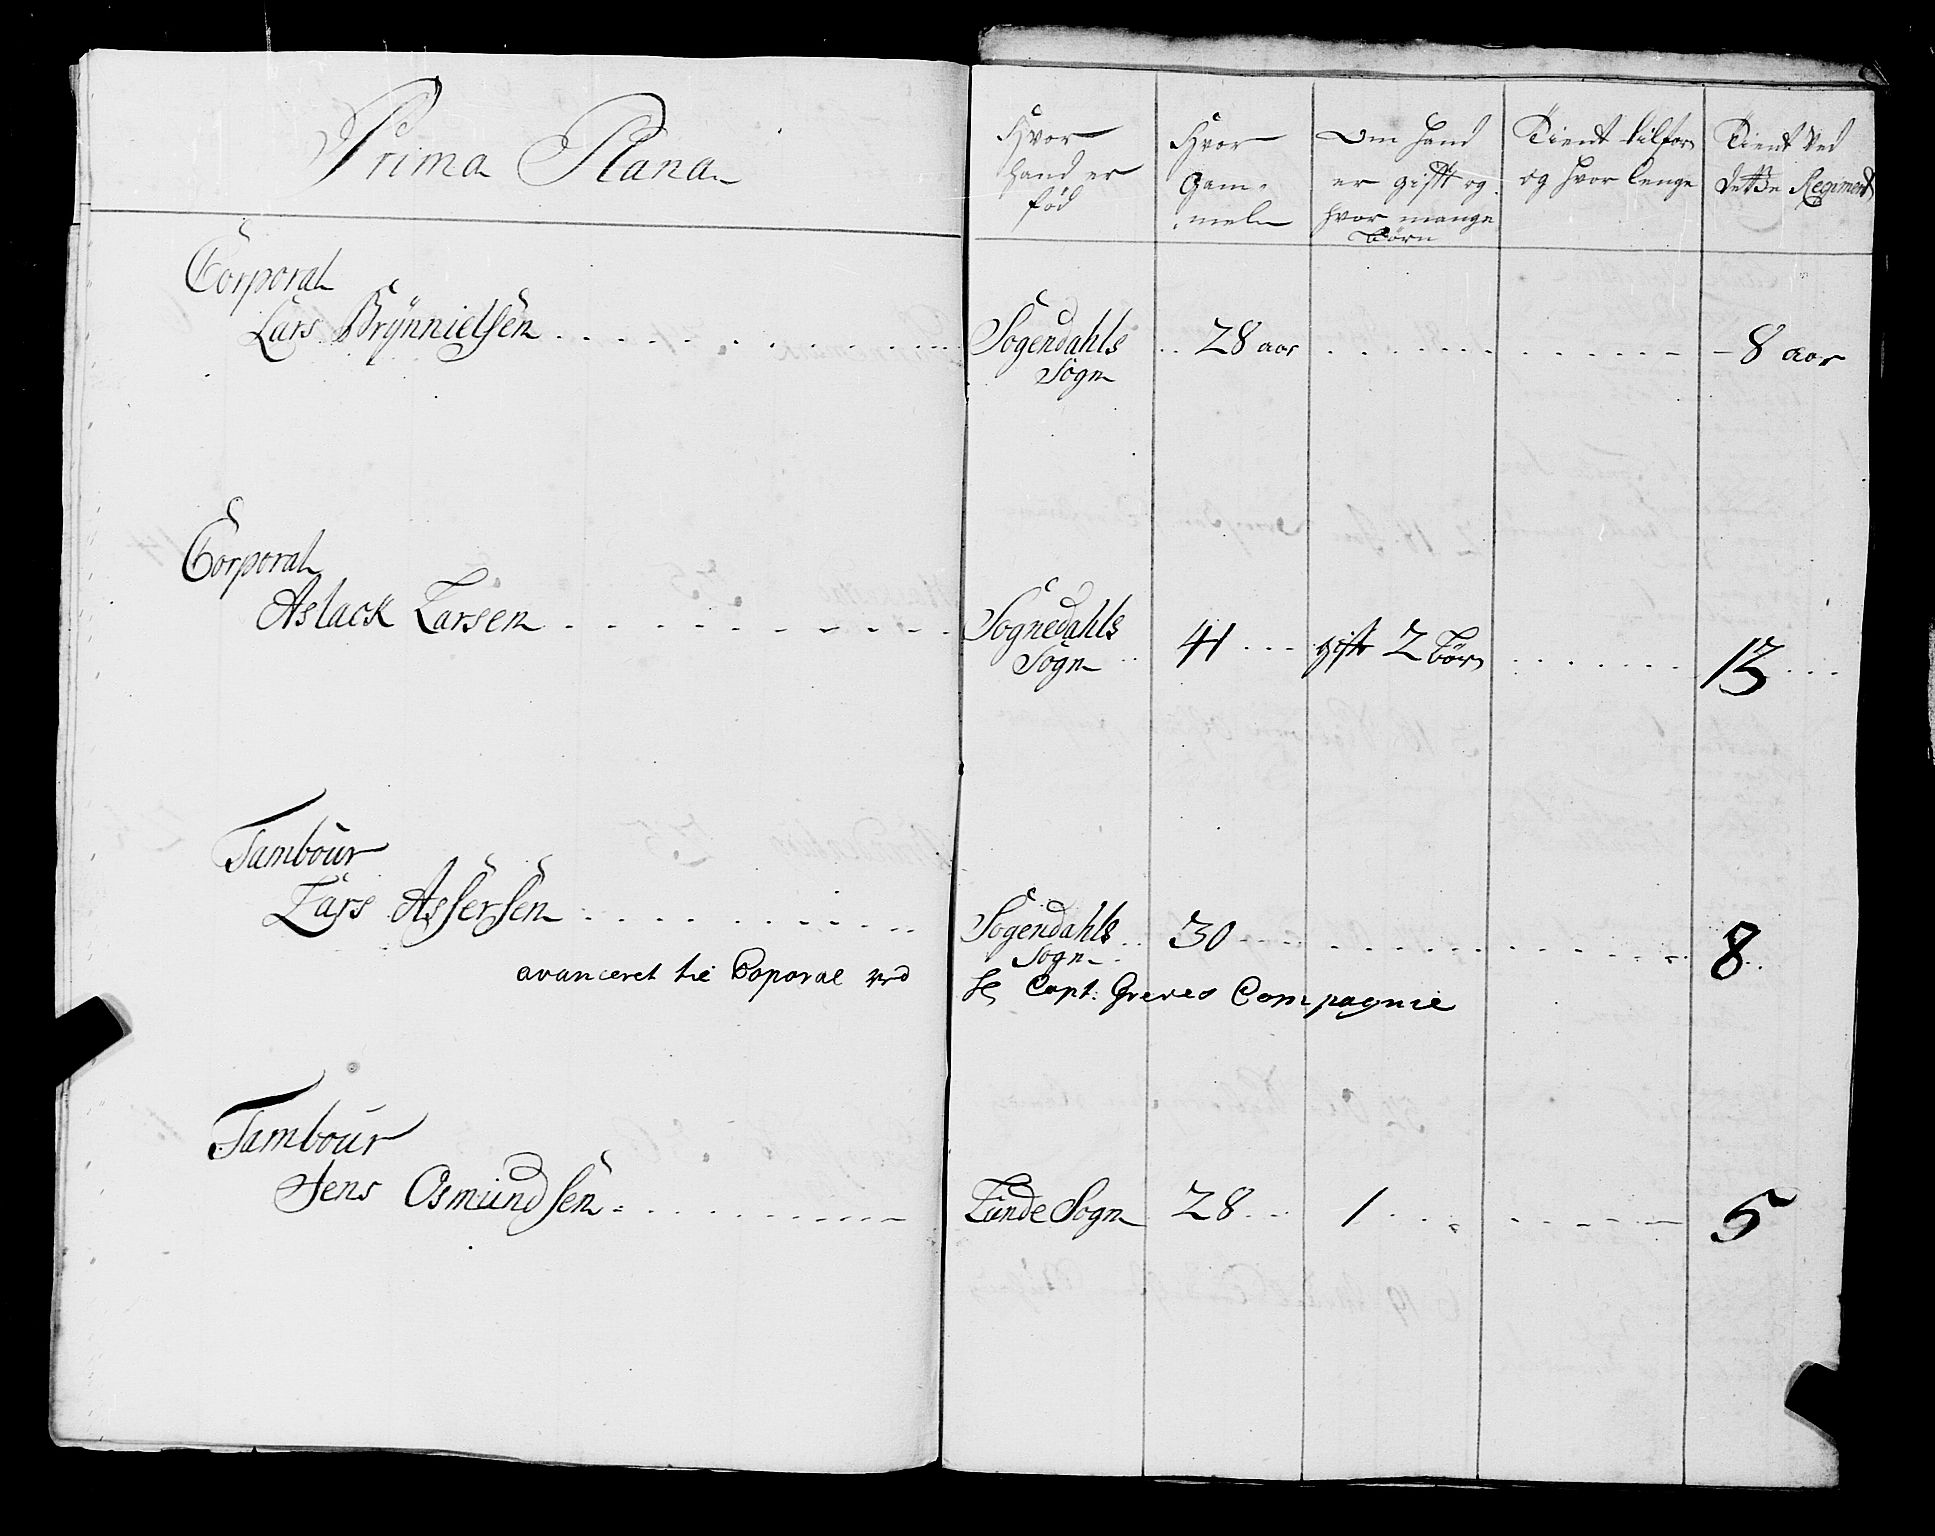 Prima Plana
Hvor hand er fød
Hvor Gammel
Om hand er gift og hvor mange Børn
Tient tilforn og hvor lenge
Tient Ved dette Regiment
Corporal
Lars Brynnielsen
Sogendahls 28 aar 8 aar
Sogn
Corporal
Aslack Larsen
Sognedahls Sogn 41 gift 2 børn 13
Tambour
Lars Assersen
Sogendahls 30 8
Sogn
avanceret til Coporal ved
Capt: Greves Compagnie
Tambour
Jens Osmundsen
Lunde Sogn 28 1 5